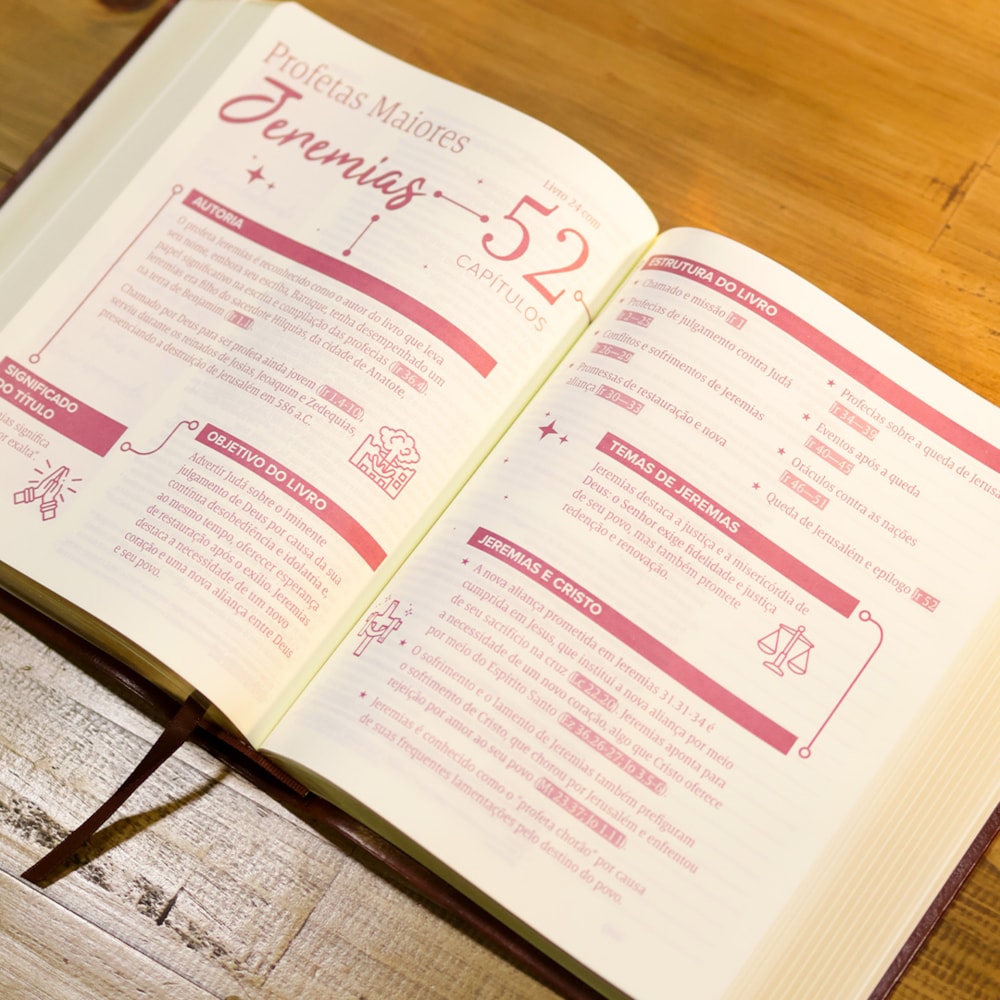 Profetas Maiores
Jeremias
Livro 24 com
52
CAPÍTULOS
AUTORIA
O profeta Jeremias é reconhecido como o autor do livro que leva
seu nome, embora seu escriba, Baruque, tenha desempenhado um
papel significativo na escrita e compilação das profecias (Jr 36.4).
Jeremias era filho do sacerdote Hilquias, da cidade de Anatote,
na terra de Benjamim (Jr 1.1).
Chamado por Deus para ser profeta ainda jovem (Jr 1.4-10),
serviu durante os reinados de Josias, Jeoaquim e Zedequias,
presenciando a destruição de Jerusalém em 586 a.C.
SIGNIFICADO
DO TÍTULO
significa
exalta"
OBJETIVO DO LIVRO
Advertir Judá sobre o iminente
julgamento de Deus por causa da sua
contínua desobediência e idolatria e,
ao mesmo tempo, oferecer esperança
de restauração após o exílio. Jeremias
destaca a necessidade de um novo
coração e uma nova aliança entre Deus
e seu povo.
ESTRUTURA DO LIVRO
Chamado e missão Jr 1
Profecias de julgamento contra Judá
2—25
Conflitos e sofrimentos de Jeremias
26—29
Promessas de restauração e nova
aliança Jr 30—33
★ Profecias sobre a queda de
Jr 34—39
★ Eventos após a queda
Jr 40—45
★ Oráculos contra as nações
Jr 46—51
★ Queda de Jerusalém e epílogo Jr 52
TEMAS DE JEREMIAS
Jeremias destaca a justiça e a misericórdia de
Deus: o Senhor exige fidelidade e justiça
de seu povo, mas também promete
redenção e renovação.
JEREMIAS E CRISTO
★ A nova aliança prometida em Jeremias 31.31-34 é
cumprida em Jesus, que institui a nova aliança por meio
de seu sacrifício na cruz (Lc 22.20). Jeremias aponta para
a necessidade de um novo coração, algo que Cristo oferece
por meio do Espírito Santo (Ez 36.26-27; Jo 3.5-6).
★ O sofrimento e o lamento de Jeremias também prefiguram
o sofrimento de Cristo, que chorou por Jerusalém e enfrentou
rejeição por amor ao seu povo (Mt 23.37; Jo 1.11).
★ Jeremias é conhecido como o "profeta chorão" por causa
de suas frequentes lamentações pelo destino do povo.